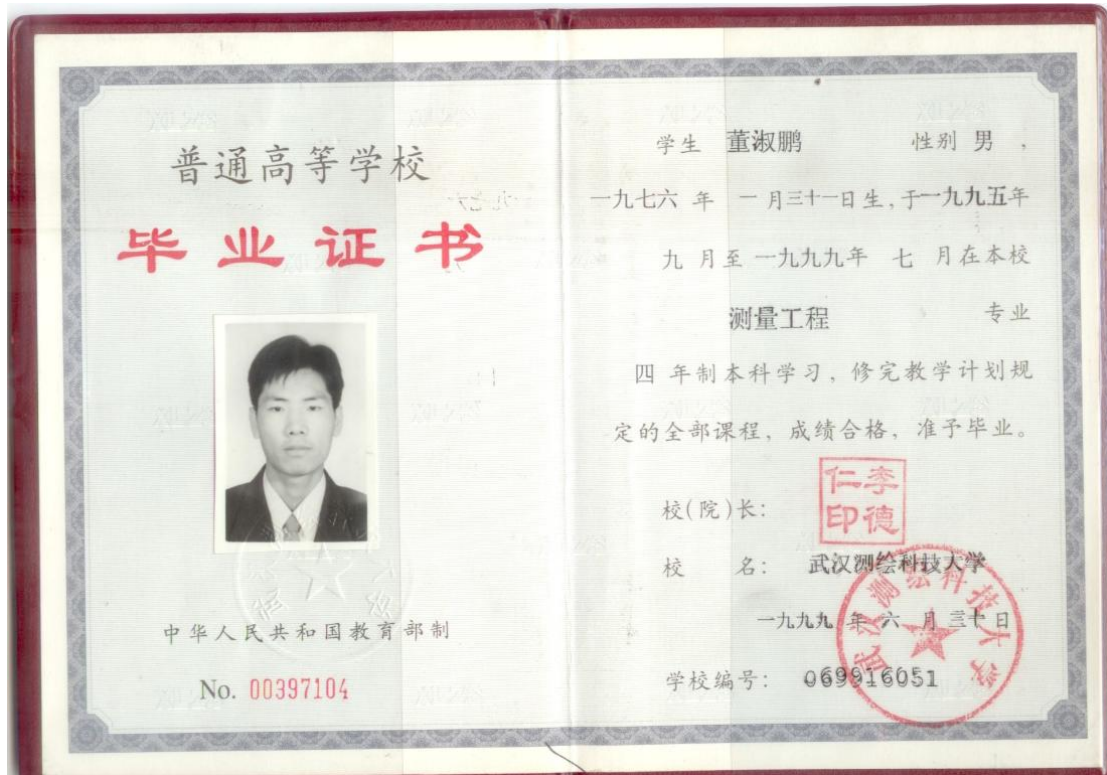 普通高等学校
毕业证书
中华人民共和国教育部制
No. 00397104
学生 董淑鹏 性别 男 ,
一九七六 年 一 月三十一日生,于一九九五年
九 月至 一九九九年 七 月在本校
测量工程 专业
四 年制本科学习, 修完教学计划规
定的全部课程, 成绩合格, 准予毕业。
李德仁印
校(院)长:
校 名: 武汉测绘科技大学
一九九九 年 六 月 三十 日
学校编号: 069916051
武汉测绘科技大学